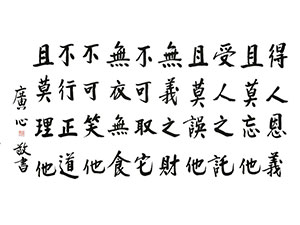 得人恩義
且莫忘他
受人之託
且莫誤他
無義之財
不可取宅
無衣無食
不可笑他
不行正道
且莫理他
廣心敬書